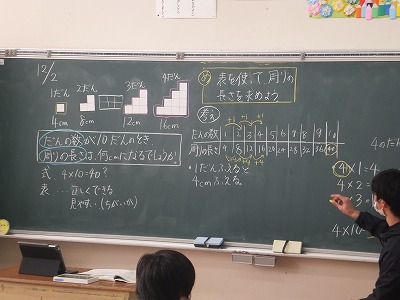 12/2
1だん 2だん 3だん 4だん
4cm 8cm 12cm 16cm
だんの数が10だんのとき、
周りの長さは、何cmになるでしょうか
式 4×10=40?
表…正しくできる
見やすい(ちがいが)
め 表を使って周りの
長さを求めよう
考え
+1 +1 +1
だんの数 1 2 3 4 5 6 7 8 9 10
周りの長さ 4 8 12 16 20 24 28 32 36 40
+4 +4 +4
・1だんふえると
4cmふえる。
4のだん
4×1=4
4×2=
×3=
4×10